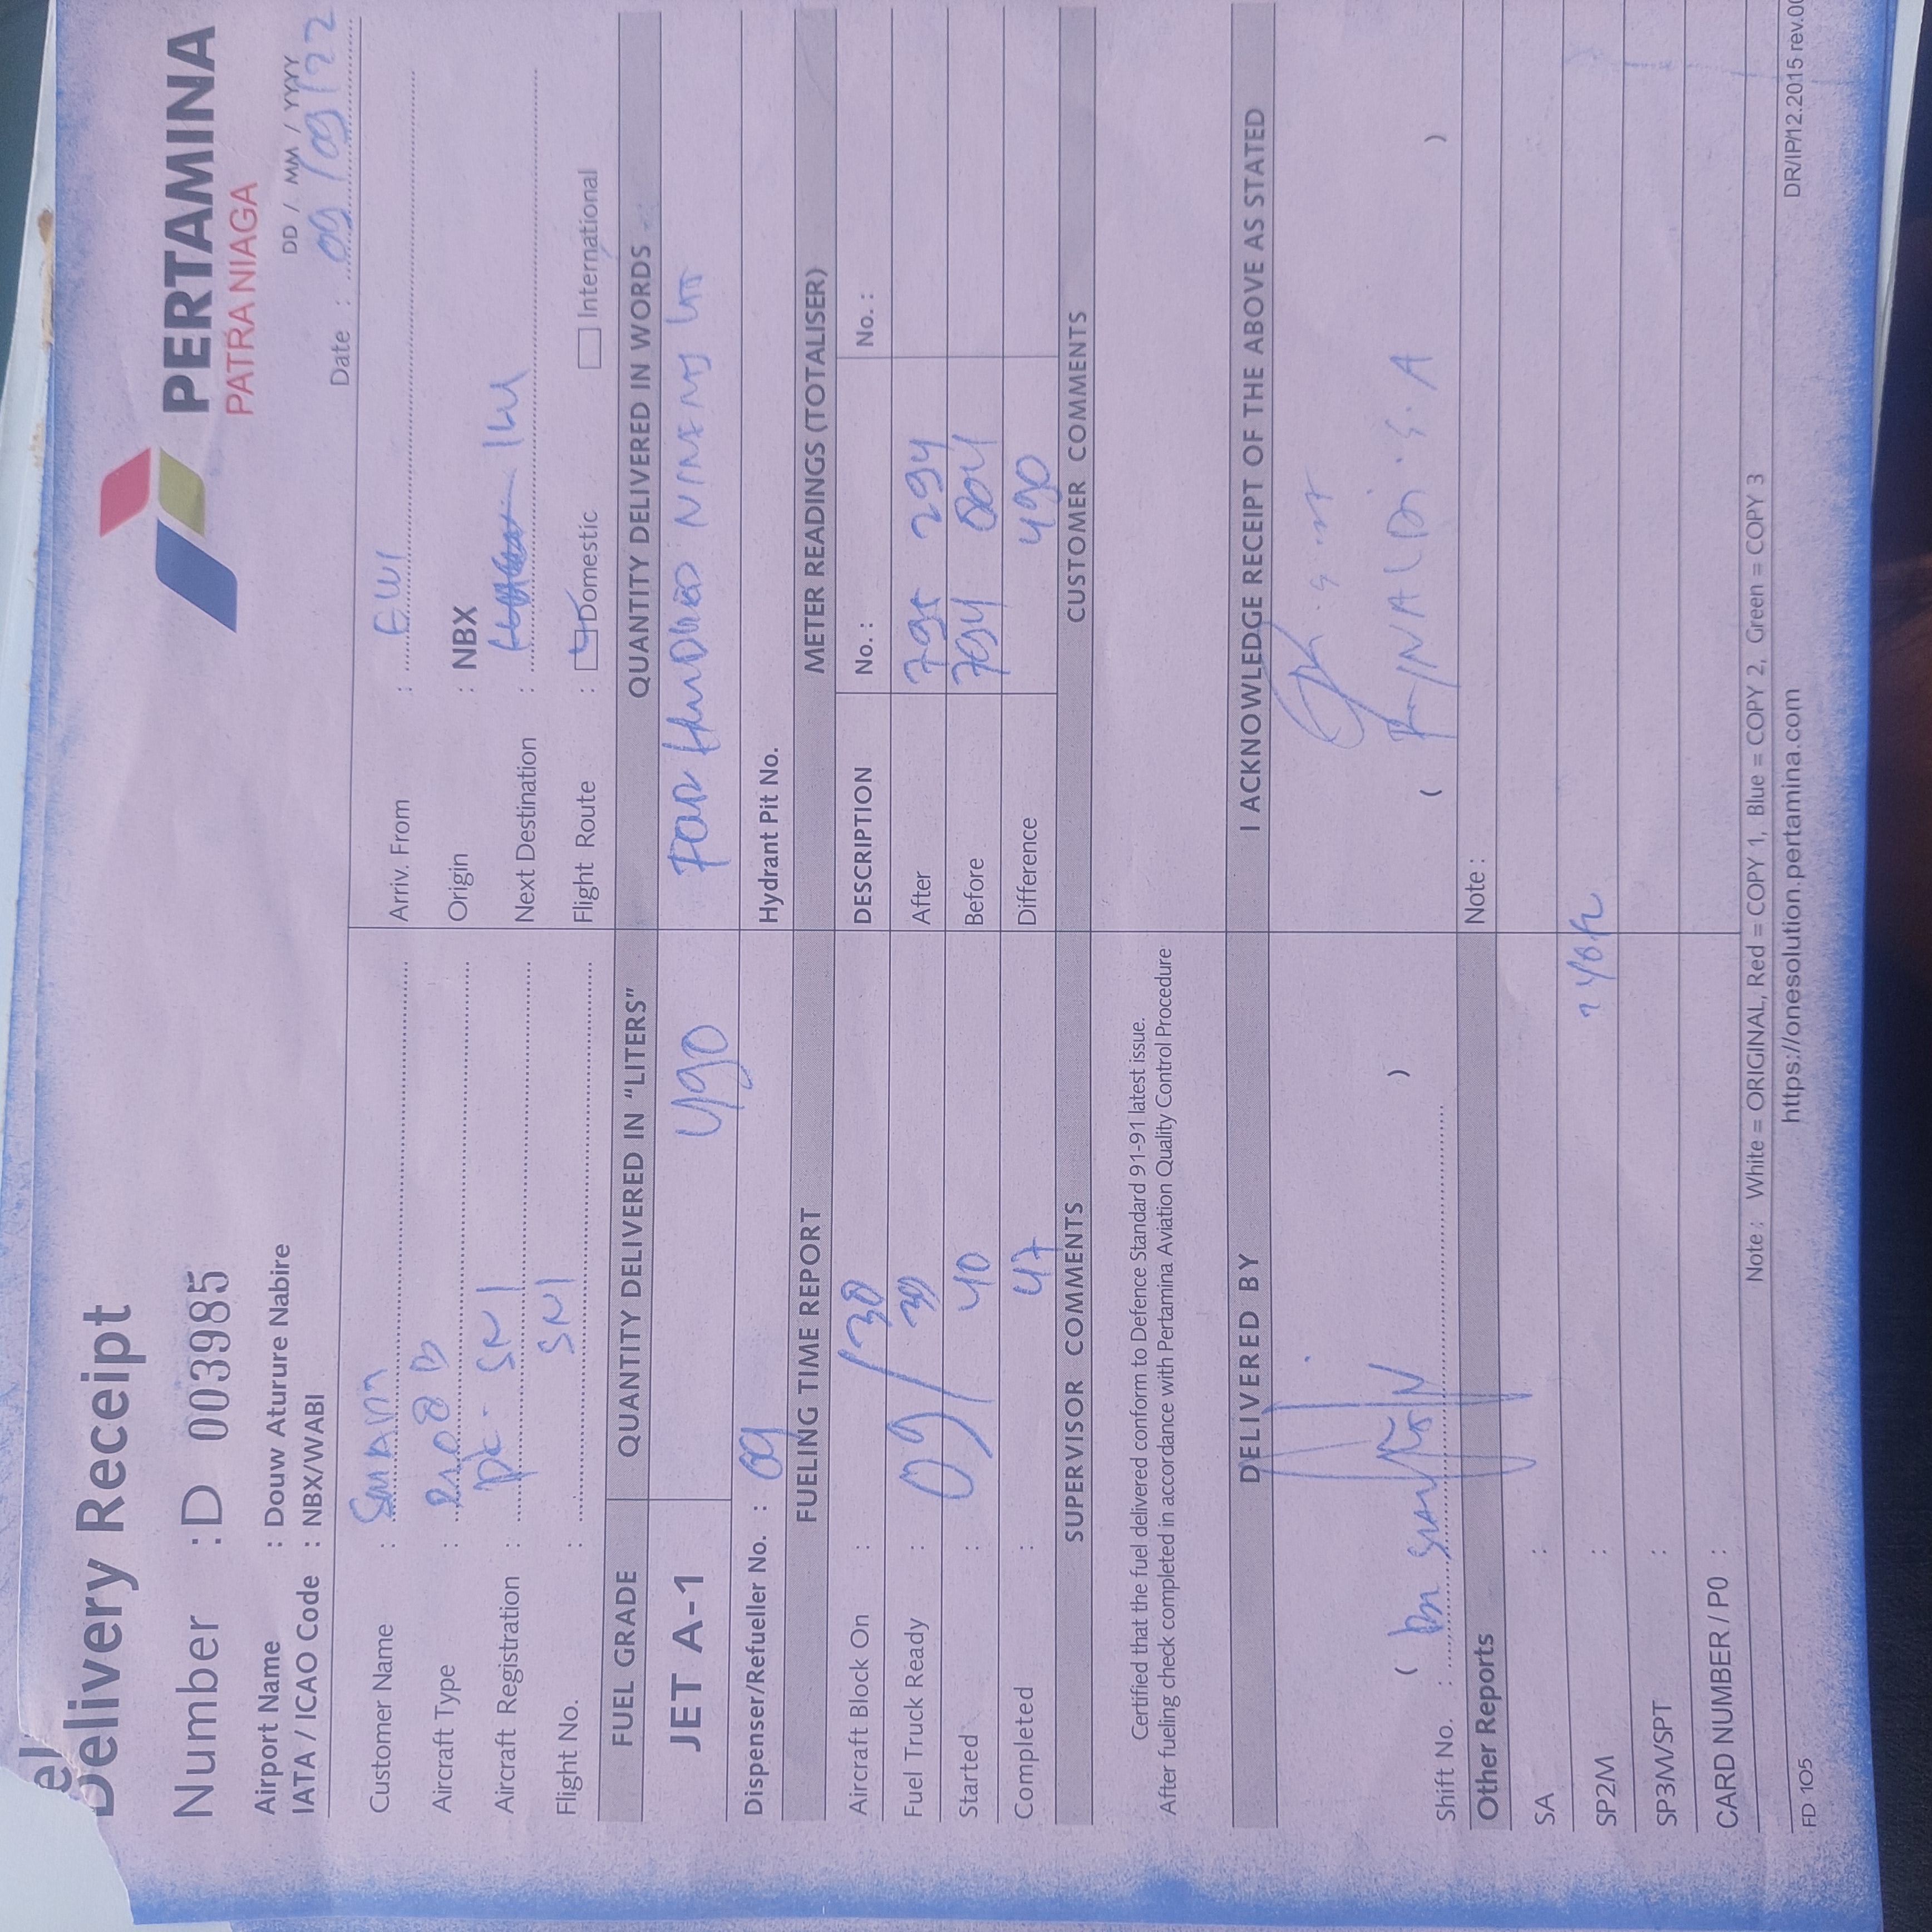 Delivery Receipt
PERTAMINA
PATRA NIAGA
Number : D 003985
DD / MM / YYYY
Date : 09 / 09 / 22
Airport Name : Douw Aturure Nabire
IATA / ICAO Code : NBX/WABI
Customer Name :
Arriv. From : EWI
Aircraft Type :
Origin : NBX
Aircraft Registration : PK - SN1
Next Destination :
Flight No. : SN1
Flight Route : Domestic International
FUEL GRADE
QUANTITY DELIVERED IN "LITERS"
QUANTITY DELIVERED IN WORDS
JET A-1
490
FOUR HUNDRED NINETY LTR
Dispenser/Refueller No. : 09
Hydrant Pit No.
FUELING TIME REPORT
METER READINGS (TOTALISER)
Aircraft Block On : 09 / 30
DESCRIPTION No. : No. :
Fuel Truck Ready : 30
After 795 294
Started : 40
Before 794 804
Completed : 47
Difference 490
SUPERVISOR COMMENTS
CUSTOMER COMMENTS
Certified that the fuel delivered conform to Defence Standard 91-91 latest issue.
After fueling check completed in accordance with Pertamina Aviation Quality Control Procedure
DELIVERED BY
I ACKNOWLEDGE RECEIPT OF THE ABOVE AS STATED
( )
( )
Shift No. :
Other Reports
Note :
SA :
SP2M :
SP3M/SPT :
CARD NUMBER / PO :
Note : White = ORIGINAL, Red = COPY 1, Blue = COPY 2, Green = COPY 3
https://onesolution.pertamina.com
FD 105
DR/IP/12.2015 rev.00